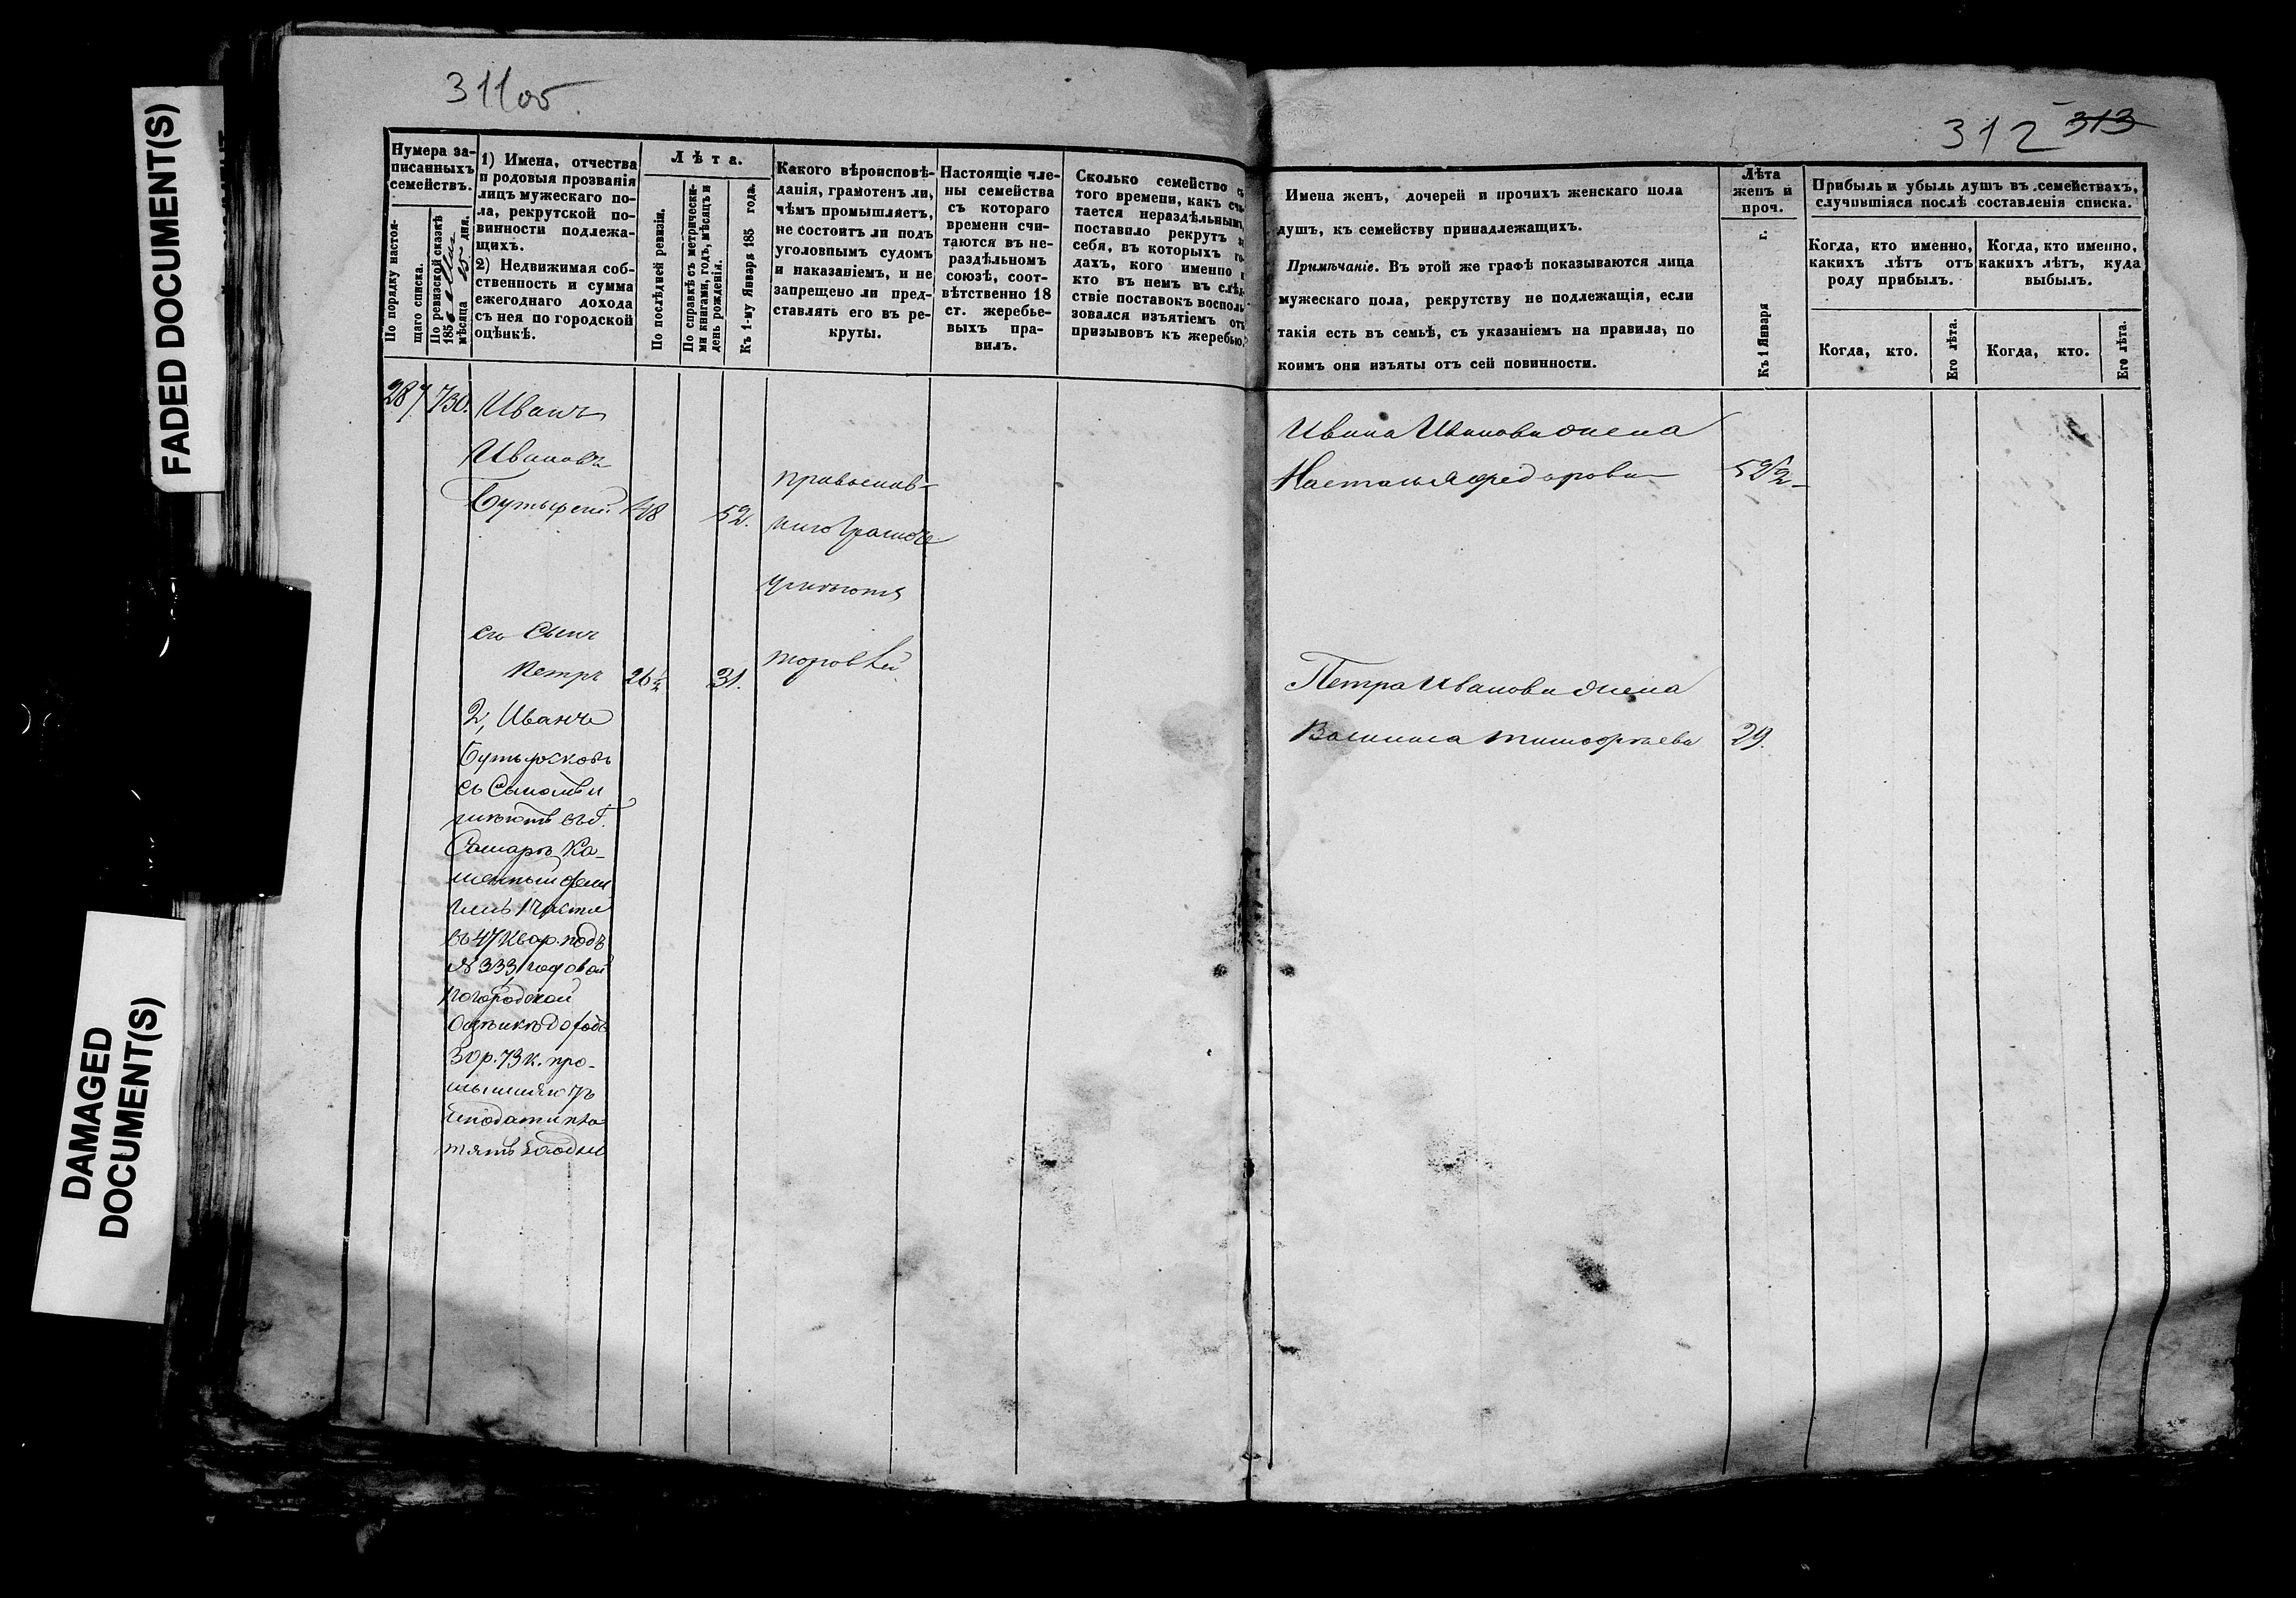 FADED DOCUMENT(S)
DAMAGED
DOCUMENT(S)
311об
Нумера за-
писанныхъ
семействъ.
По порядку настоя-
щаго списка.
По ревизской сказкѣ
185
мѣсяца 15 дня.
1) Имена, отчества
и родовыя прозванія
лицъ мужескаго по-
ла, рекрутской по-
винности подлежа-
щихъ.
2) Недвижимая соб-
ственность и сумма
ежегоднаго дохода
съ нея по городской
оцѣнкѣ.
Лѣта.
По послѣдней ревизіи.
По справкѣ съ метрически-
ми книгами, годъ, мѣсяцъ и
день рожденія.
Къ 1-му Января 185 года.
Какого вѣроисповѣ-
данія, грамотенъ ли,
чѣмъ промышляетъ,
не состоитъ ли подъ
уголовнымъ судомъ
и наказаніемъ, и не
запрещено ли пред-
ставлять его въ ре-
круты.
Настоящіе чле-
ны семейства
съ котораго
времени счи-
таются въ не-
раздѣльномъ
союзѣ, соот-
вѣтственно 18
ст. жеребье-
выхъ пра-
вилъ.
Сколько семейство съ
того времени, какъ счи-
тается нераздѣльнымъ,
поставило рекрутъ за
себя, въ которыхъ го-
дахъ, кого именно и
кто въ немъ въ слѣд-
ствіе поставокъ восполь-
зовался изъятіемъ отъ
призывовъ къ жеребью.
287 730. Иванъ
Ивановъ
148 52.
православ-
торговлей
его сынъ
Петръ 26½ 31.
2, Иванъ
Бутырсковъ
съ Сыномъ и
мѣютъ въ г.
Самаръ Ка-
менный фли
гель 1 части
въ 47 Квар. подъ
№ 333 годовой
по городской
Оцѣнкѣ доходъ
30р. 73 к. про-
мышляютъ
и подати пла
тятъ
312 313
Имена женъ, дочерей и прочихъ женскаго пола
душъ, къ семейству принадлежащихъ.
Примѣчаніе. Въ этой же графѣ показываются лица
мужескаго пола, рекрутству не подлежащія, если
такія есть въ семьѣ, съ указаніемъ на правила, по
коимъ они изъяты отъ сей повинности.
Лѣта
женъ и
проч.
Къ 1 Января г.
Прибыль и убыль душъ въ семействахъ,
случившіяся послѣ составленія списка.
Когда, кто именно,
какихъ лѣтъ отъ
роду прибылъ.
Когда, кто именно,
какихъ лѣтъ, куда
выбылъ.
Когда, кто.
Его лѣта.
Когда, кто.
Его лѣта.
Ивана Иванова жена
Настасья Федорова
Петра Иванова жена
Василиса Тимофѣева 29.